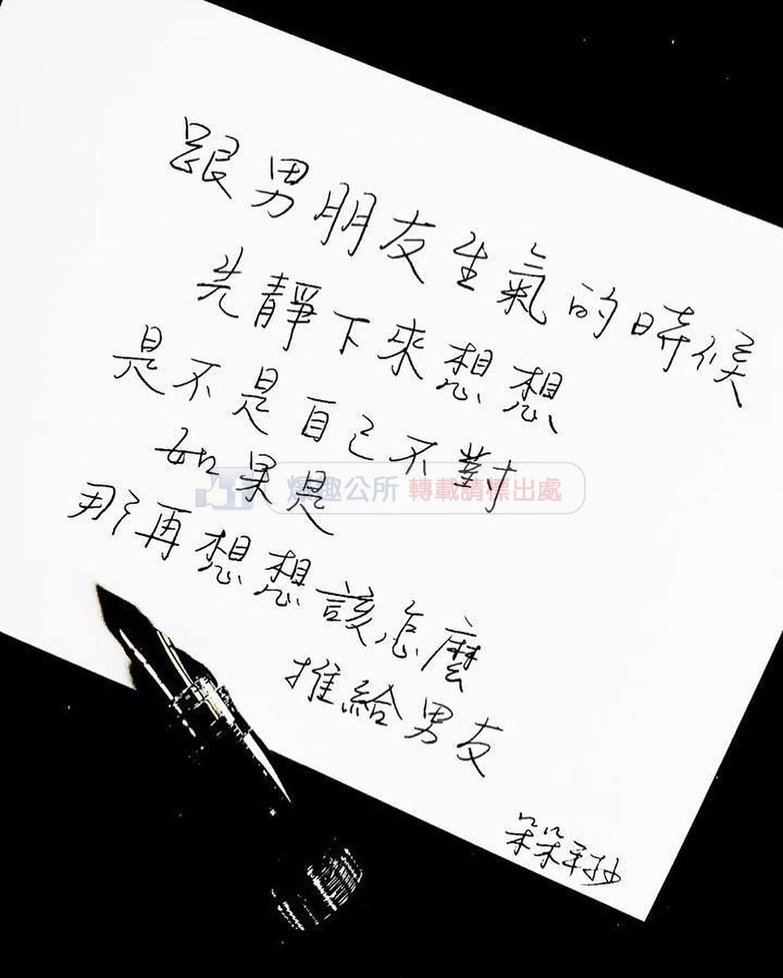 跟男朋友生氣的時候
先靜下來想想
是不是自己不對
如果是
爆趣公所 轉載請標出處
那再想想該怎麼
推給男友
手抄